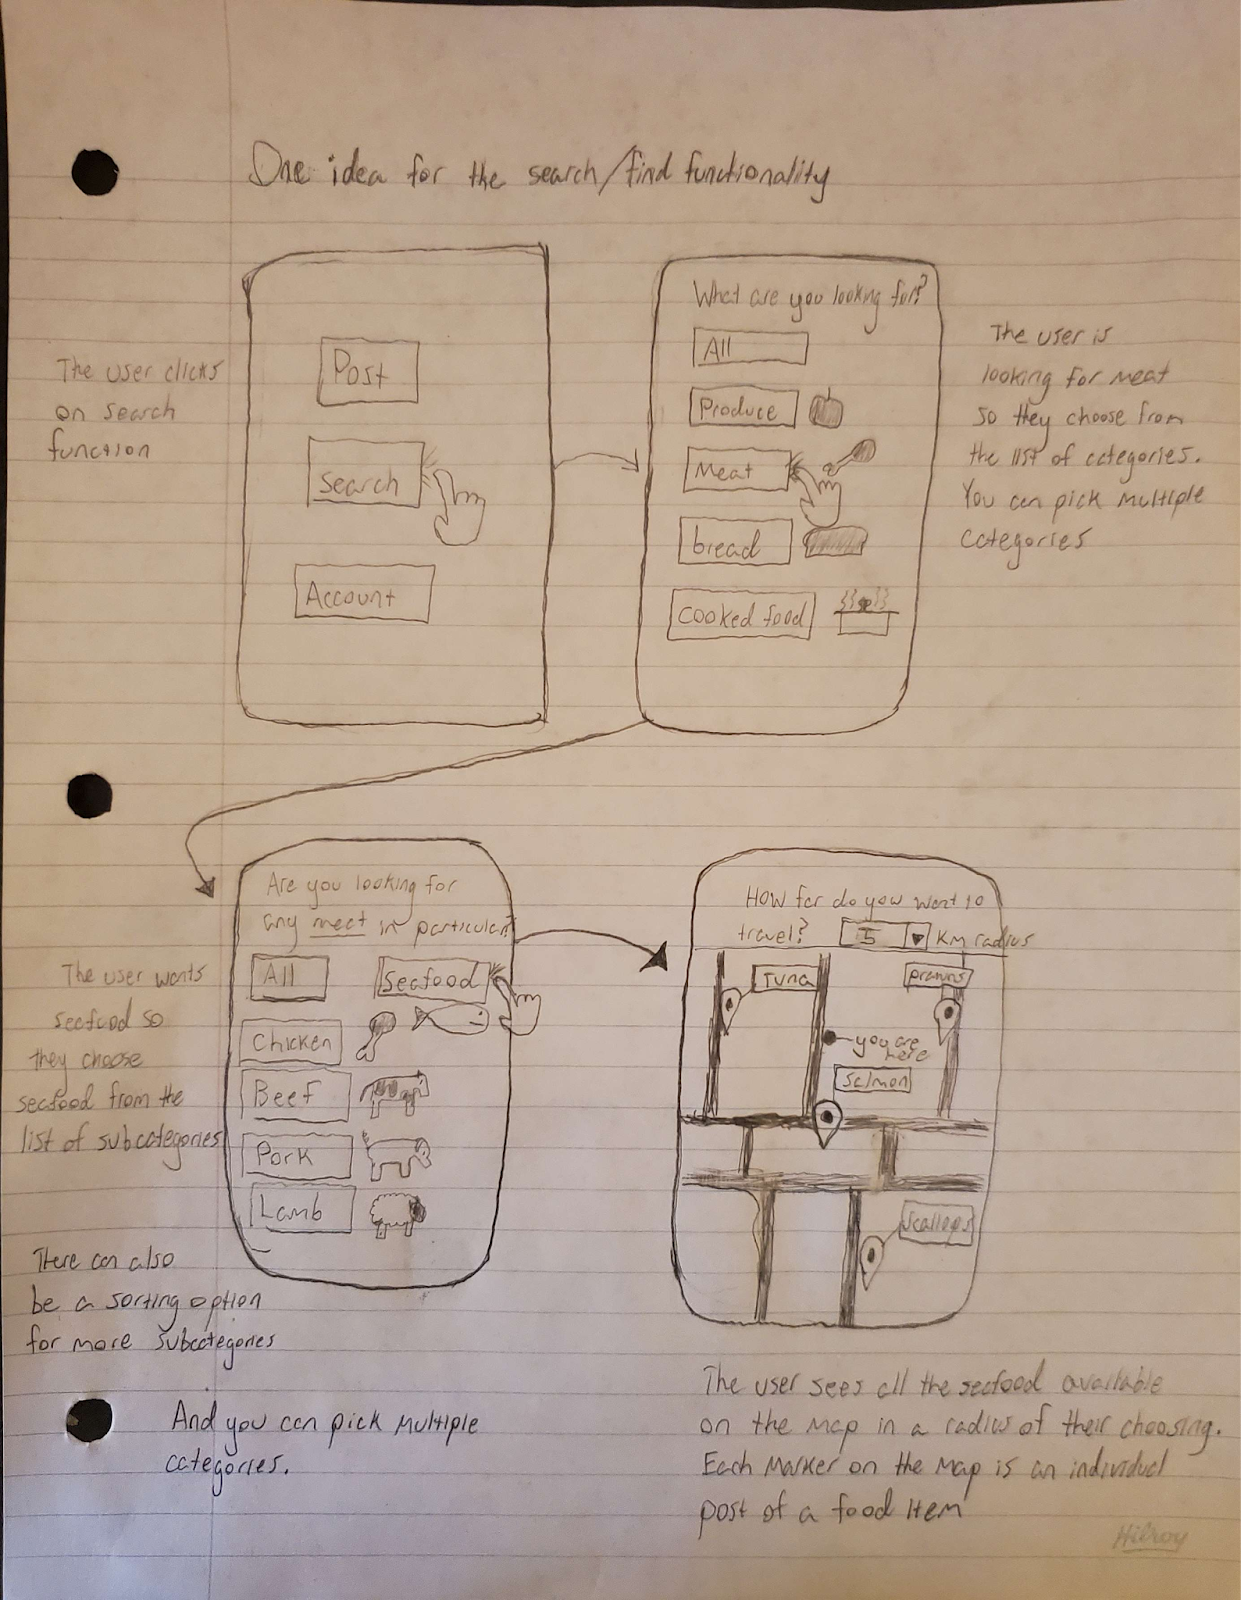 One idea for the search/find functionality
The user clicks
on search
function
Post
Search
Account
What are you looking for?
All
Produce
Meat
bread
Cooked food
The user is
looking for meat
so they choose from
the list of categories.
You can pick multiple
categories
The user wants
seafood so
they choose
seafood from the
list of subcategories
There can also
be a sorting option
for more subcategories
And you can pick multiple
categories.
Are you looking for
any meat in particular?
All
Seafood
Chicken
Beef
Pork
Lamb
How far do you want to
travel? 5 KM radius
Tuna
prawns
you are
here
Salmon
Scallops
The user sees all the seafood available
on the map in a radius of their choosing.
Each marker on the map is an individual
post of a food item
Hilroy